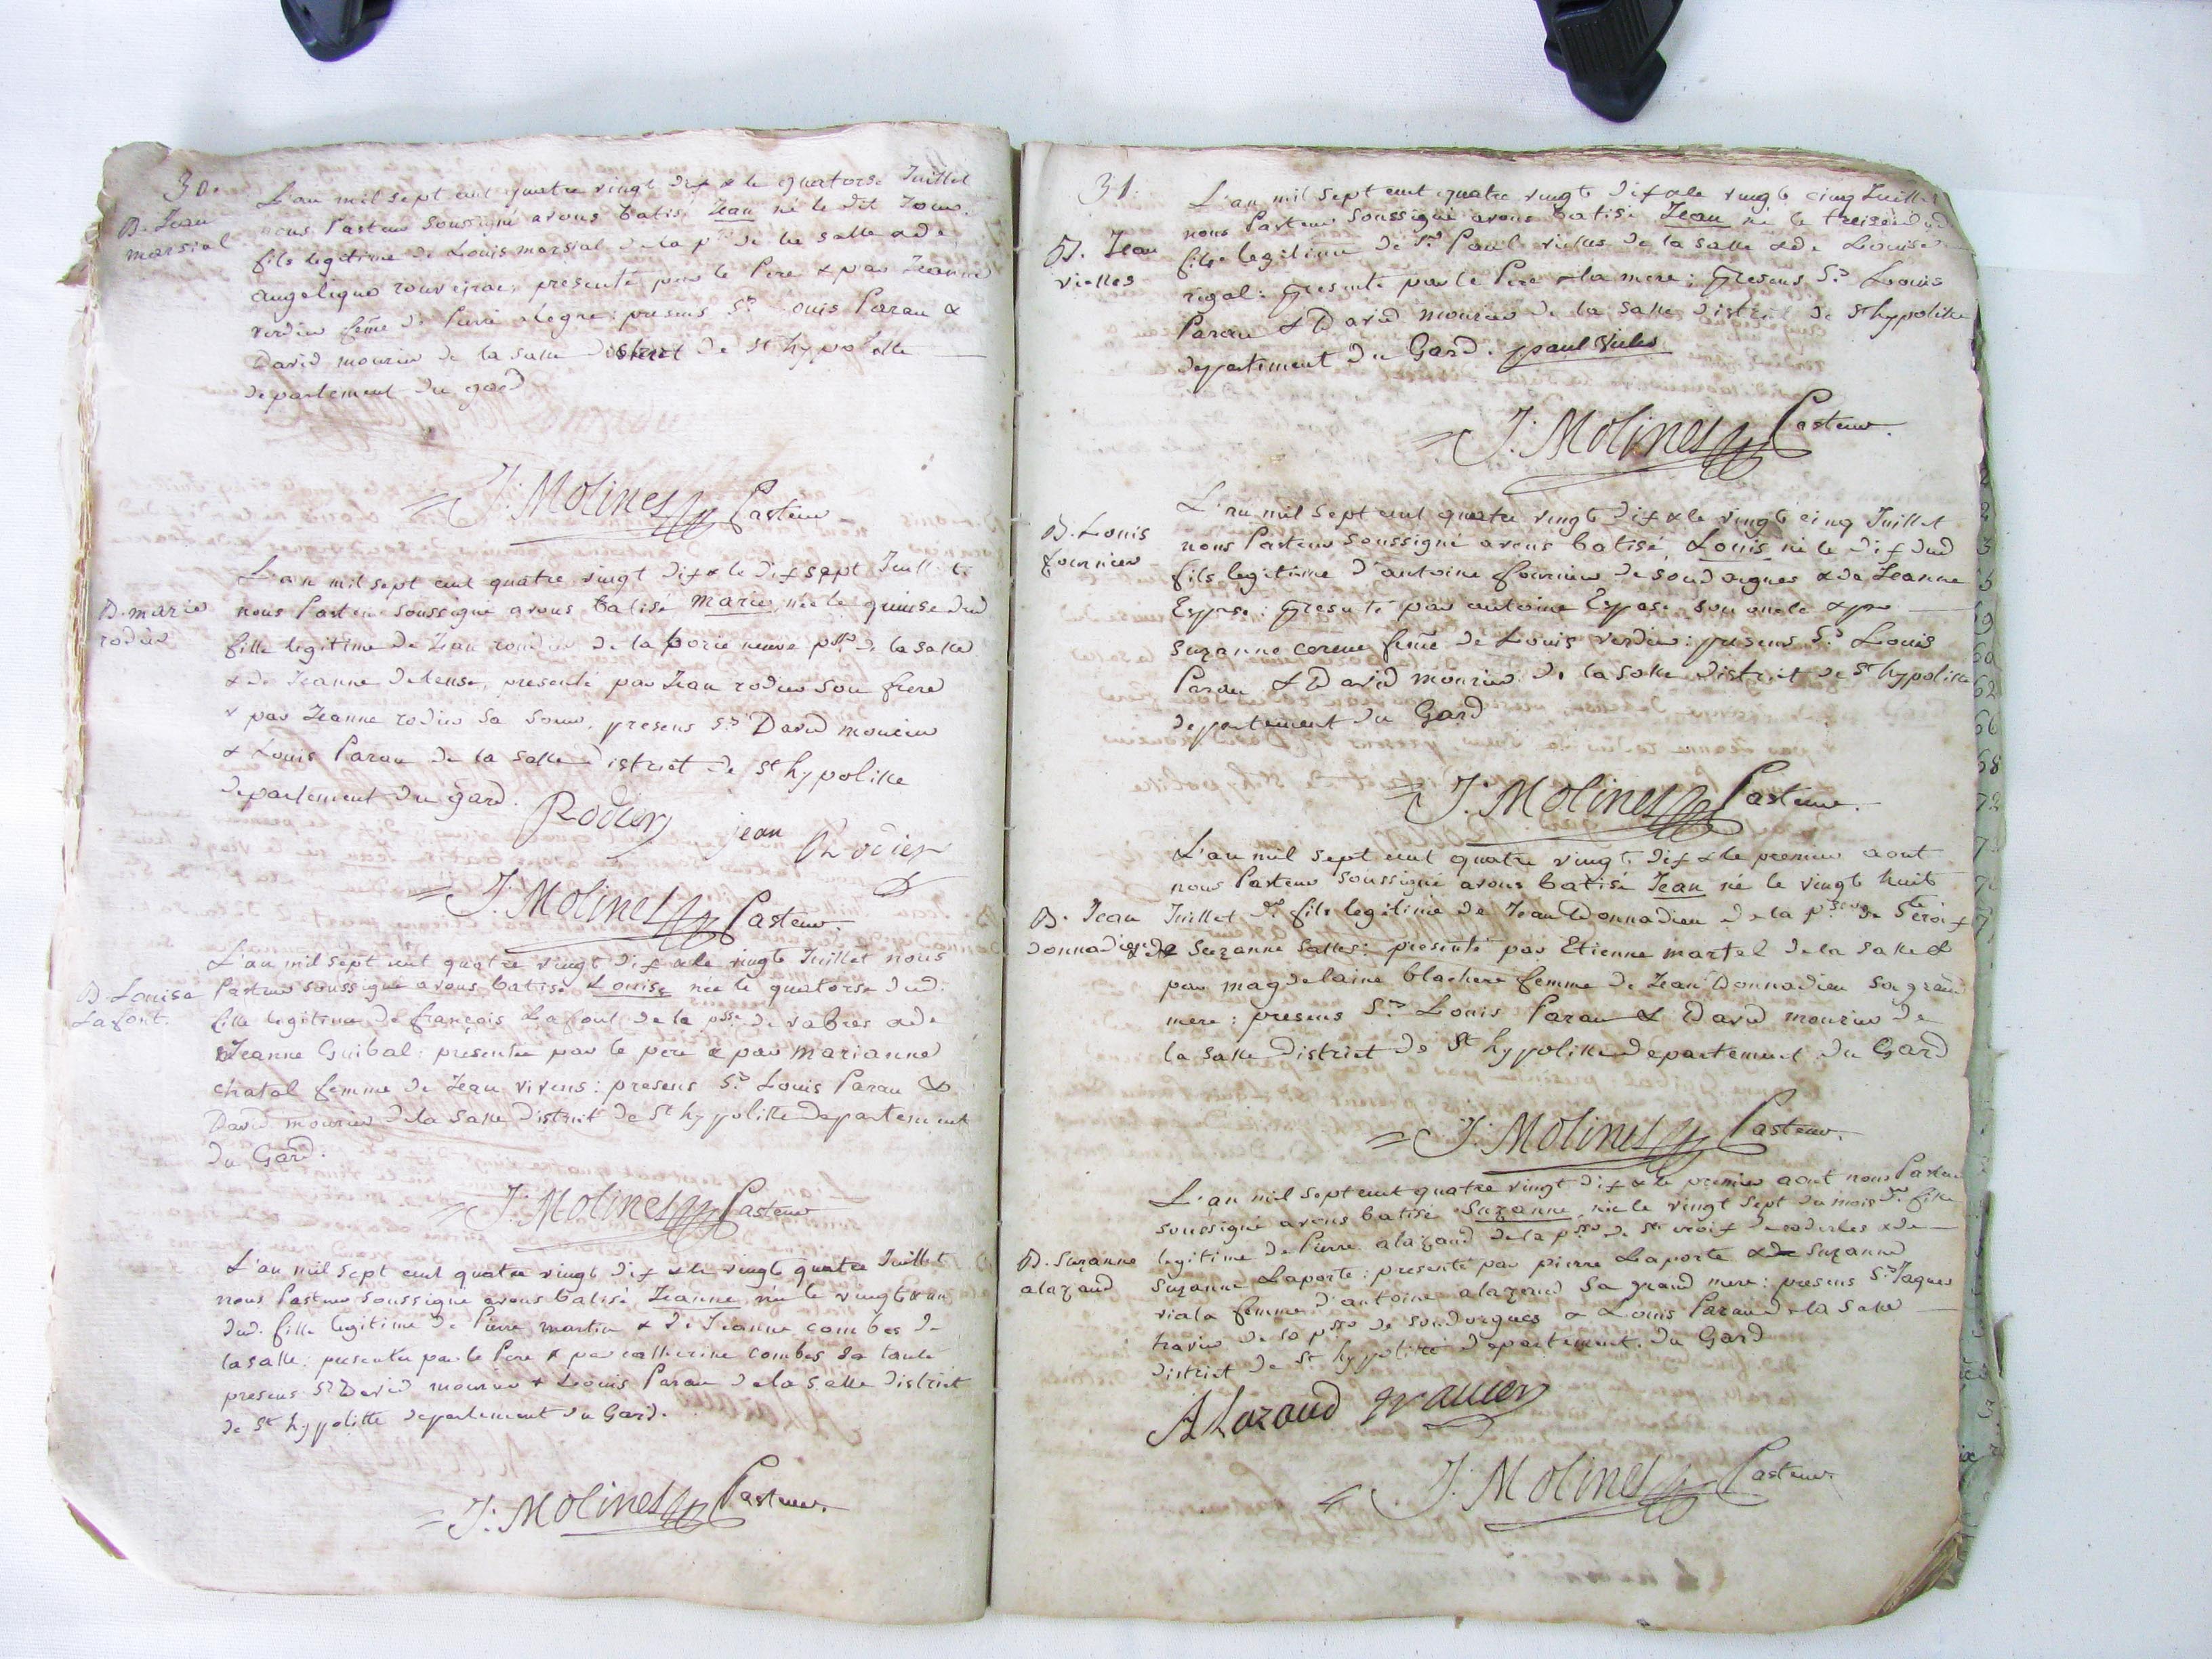 30.
B. Jean
marsial
L'an mil sept cent quatre vingt dix & le quatorse Juillet
nous Pasteur soussigné avons batisé Jean né le dit Jour
fils legitime de Louis marsial de la psse de la salle & de
angelique rouveirac, presenté par le Pere & par Jeanne
verdier feme de Pierre alegre: presens Srs Louis Parau &
David mourier de la salle district de St hypolitte
departement du gard
J: Molines Pasteur
B. marie
rodier
L'an mil sept cent quatre vingt dix & le dix sept Juillet
nous Pasteur soussigné avons batisé marie, née le quinse dud
fille legitime de Jean rodier de la borie neuve psse de la salle
& de Jeanne deleuse, presenté par Jean rodier son frere
& par Jeanne rodier sa soeur, presens Srs David mourier
& Louis Parau de la salle district de St hypolitte
departement du gard.
Rodier jean Rodier
J: Molines Pasteur.
B. Louise
Lafont.
L'an mil sept cent quatre vingt dix & le vingt Juillet nous
Pasteur soussigné avons batisé Louise née le quatorse dud.
fille legitime de françois Lafont de la psse de vabres & de
Jeanne Guibal: presentée par le pere & par marianne
chatal femme de Jean vivens: presens Srs Louis Parau &
David mourier de la salle district de St hypolitte departement
du Gard.
J: Molines Pasteur
L'an mil sept cent quatre vingt dix & le vingt quatre Juillet
nous Pasteur soussigné avons batisé, Jeanne née le vingt & un
dud. fille legitime de Pierre martin & de Jeanne combes de
la salle: presentée par le Pere & par catherine combes sa tante
presens Srs David mourier & Louis Parau de la salle district
de St hypolitte departement du Gard.
J: Molines Pasteur.
31.
B. Jean
vielles
L'an mil sept cent quatre vingt dix & le vingt cinq Juillet
nous Pasteur soussigné avons batisé Jean né le treise dud
fils legitime de Sr Paul vielles de la salle & de Louise
rigal: presenté par le Pere & la mere; presens Srs Louis
Parau & David mourier de la salle district de St hypolitte
departement du Gard. paul Vieles
J: Molines Pasteur.
B. Louis
fournier
L'an mil sept cent quatre vingt dix & le vingt cinq Juillet
nous Pasteur soussigné avons batisé, Louis né le dix dud
fils legitime d'antoine fournier de soudorgues & de Jeanne
Espase: presenté par antoine Espase son oncle & par
suzanne feme de Louis verdier: presens Srs Louis
Parau & David mourier de la salle district de St hypolitte
departement du Gard
J: Molines Pasteur.
B. Jean
Donnadieu
L'an mil sept cent quatre vingt dix & le premier aout
nous Pasteur soussigné avons batisé Jean né le vingt huit
Juillet dr fils legitime de Jean Donnadieu de la psse de Ste croix
& de Suzanne salles: presenté par Etienne martel de la salle &
par magdelaine blachere femme de Jean Donnadieu sa grand
mere: presens Srs Louis Parau & David mourier de
la salle district de St hypolitte departement du Gard
J: Molines Pasteur.
B. Suzanne
alazaud
L'an mil sept cent quatre vingt dix & le premier aout nous Pasteur
soussigné avons batisé Suzanne née le vingt sept du mois dr. fille
legitime de Pierre alazaud de la psse de Ste croix de caderles & de
Suzanne Laporte: presenté par pierre Laporte & de Suzanne
viala femme d'antoine alazaud sa grand mere: presens Srs Jaques
travier de la psse de soudorgues & Louis Parau de la salle
district de St hypolitte departement du Gard
Alazaud
J: Molines Pasteur.